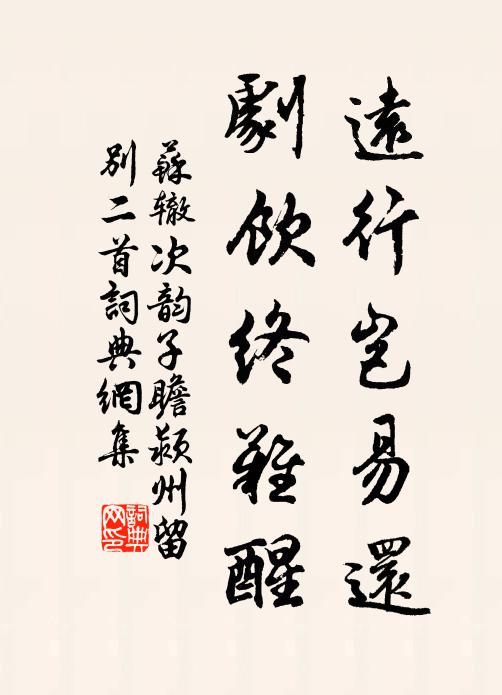 遠行豈易還
劇飲終難醒
蘇辙次韵子瞻颍州留
别二首詞典網集
詞典網印